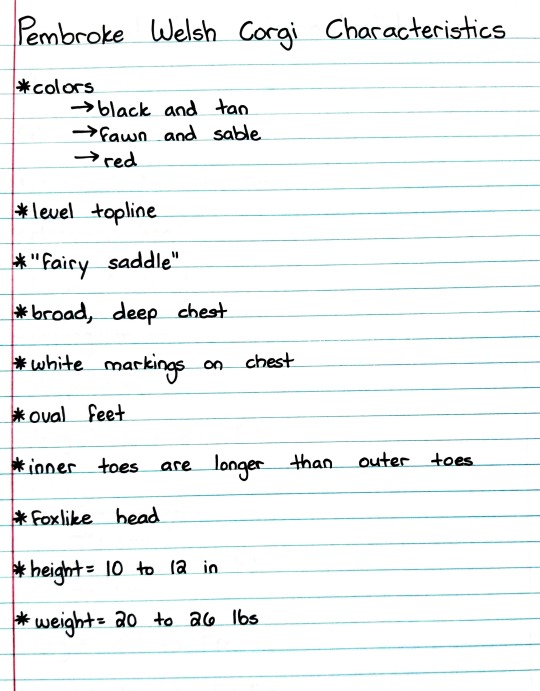 Pembroke Welsh Corgi Characteristics
*colors
→black and tan
→fawn and sable
→red
*level topline
*"fairy saddle"
*broad, deep chest
*white markings on chest
*oval feet
*inner toes are longer than outer toes
*foxlike head
*height= 10 to 12 in
*weight= 20 to 26 lbs